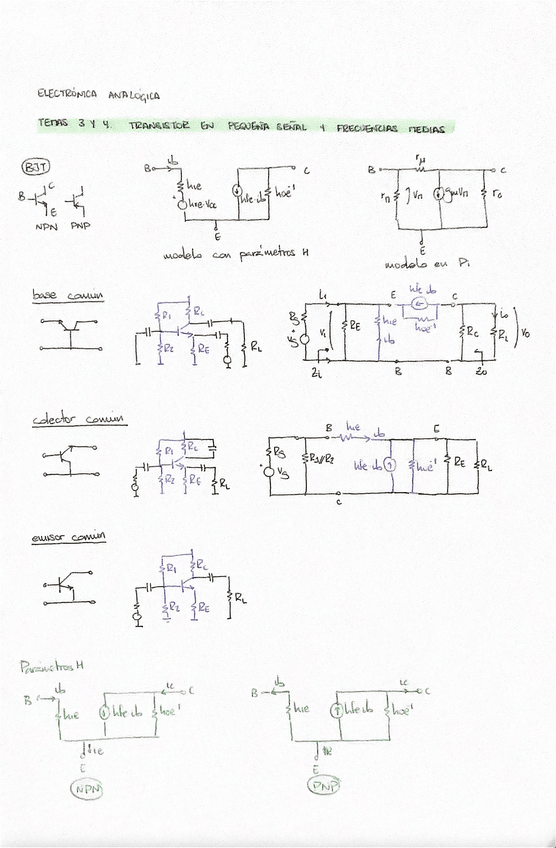 ELECTRÓNICA ANALÓGICA
TEMAS 3 Y 4. TRANSISTOR EN PEQUEÑA SEÑAL Y FRECUENCIAS MEDIAS
BJT
B C E
NPN PNP
B ib hie hre·Vce hfe·ib hoe⁻¹ C
E
modelo con parámetros H
B rμ C
rπ Vπ gmVπ ro
E
modelo en Pi
base común
R1 RC
R2 RE RL
ii E hfe ib C io
RS Vs Vi RE hie ib hoe⁻¹ RC RL Vo
Zi B B Zo
colector común
R1 RC
R2 RE RL
B hie ib E
RS Vs R1//R2 hfe ib hoe⁻¹ RE RL
C
emisor común
R1 RC
R2 RE RL
Parámetros H
B ib hie hfe ib hoe⁻¹ ic C
ie
E
NPN
B ib hie hfe ib hoe⁻¹ ic C
ie
E
PNP